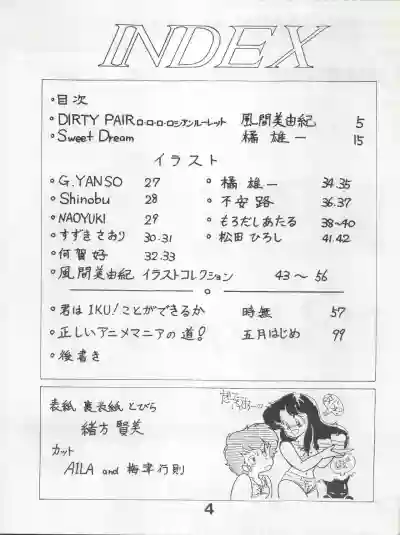 INDEX
◦目次
◦DIRTY PAIR ロ・ロ・ロ・ロシアンルーレット 風間美由紀 5
◦Sweet Dream 橘 雄一 15
イラスト
◦G.YANSO 27
◦Shinobu 28
◦NAOYUKI 29
◦すずきさおり 30・31
◦何賀好 32.33
◦橘 雄一 34.35
◦不安路 36.37
◦もろだしあたる 38〜40
◦松田ひろし 41.42
◦風間美由紀 イラストコレクション 43〜56
◦君は IKU!ことができるか 時無 57
◦正しいアニメマニアの道! 五月はじめ 99
◦後書き
表紙 裏表紙 とびら
緒方賢美
カット
AILA and 梅津行則
4